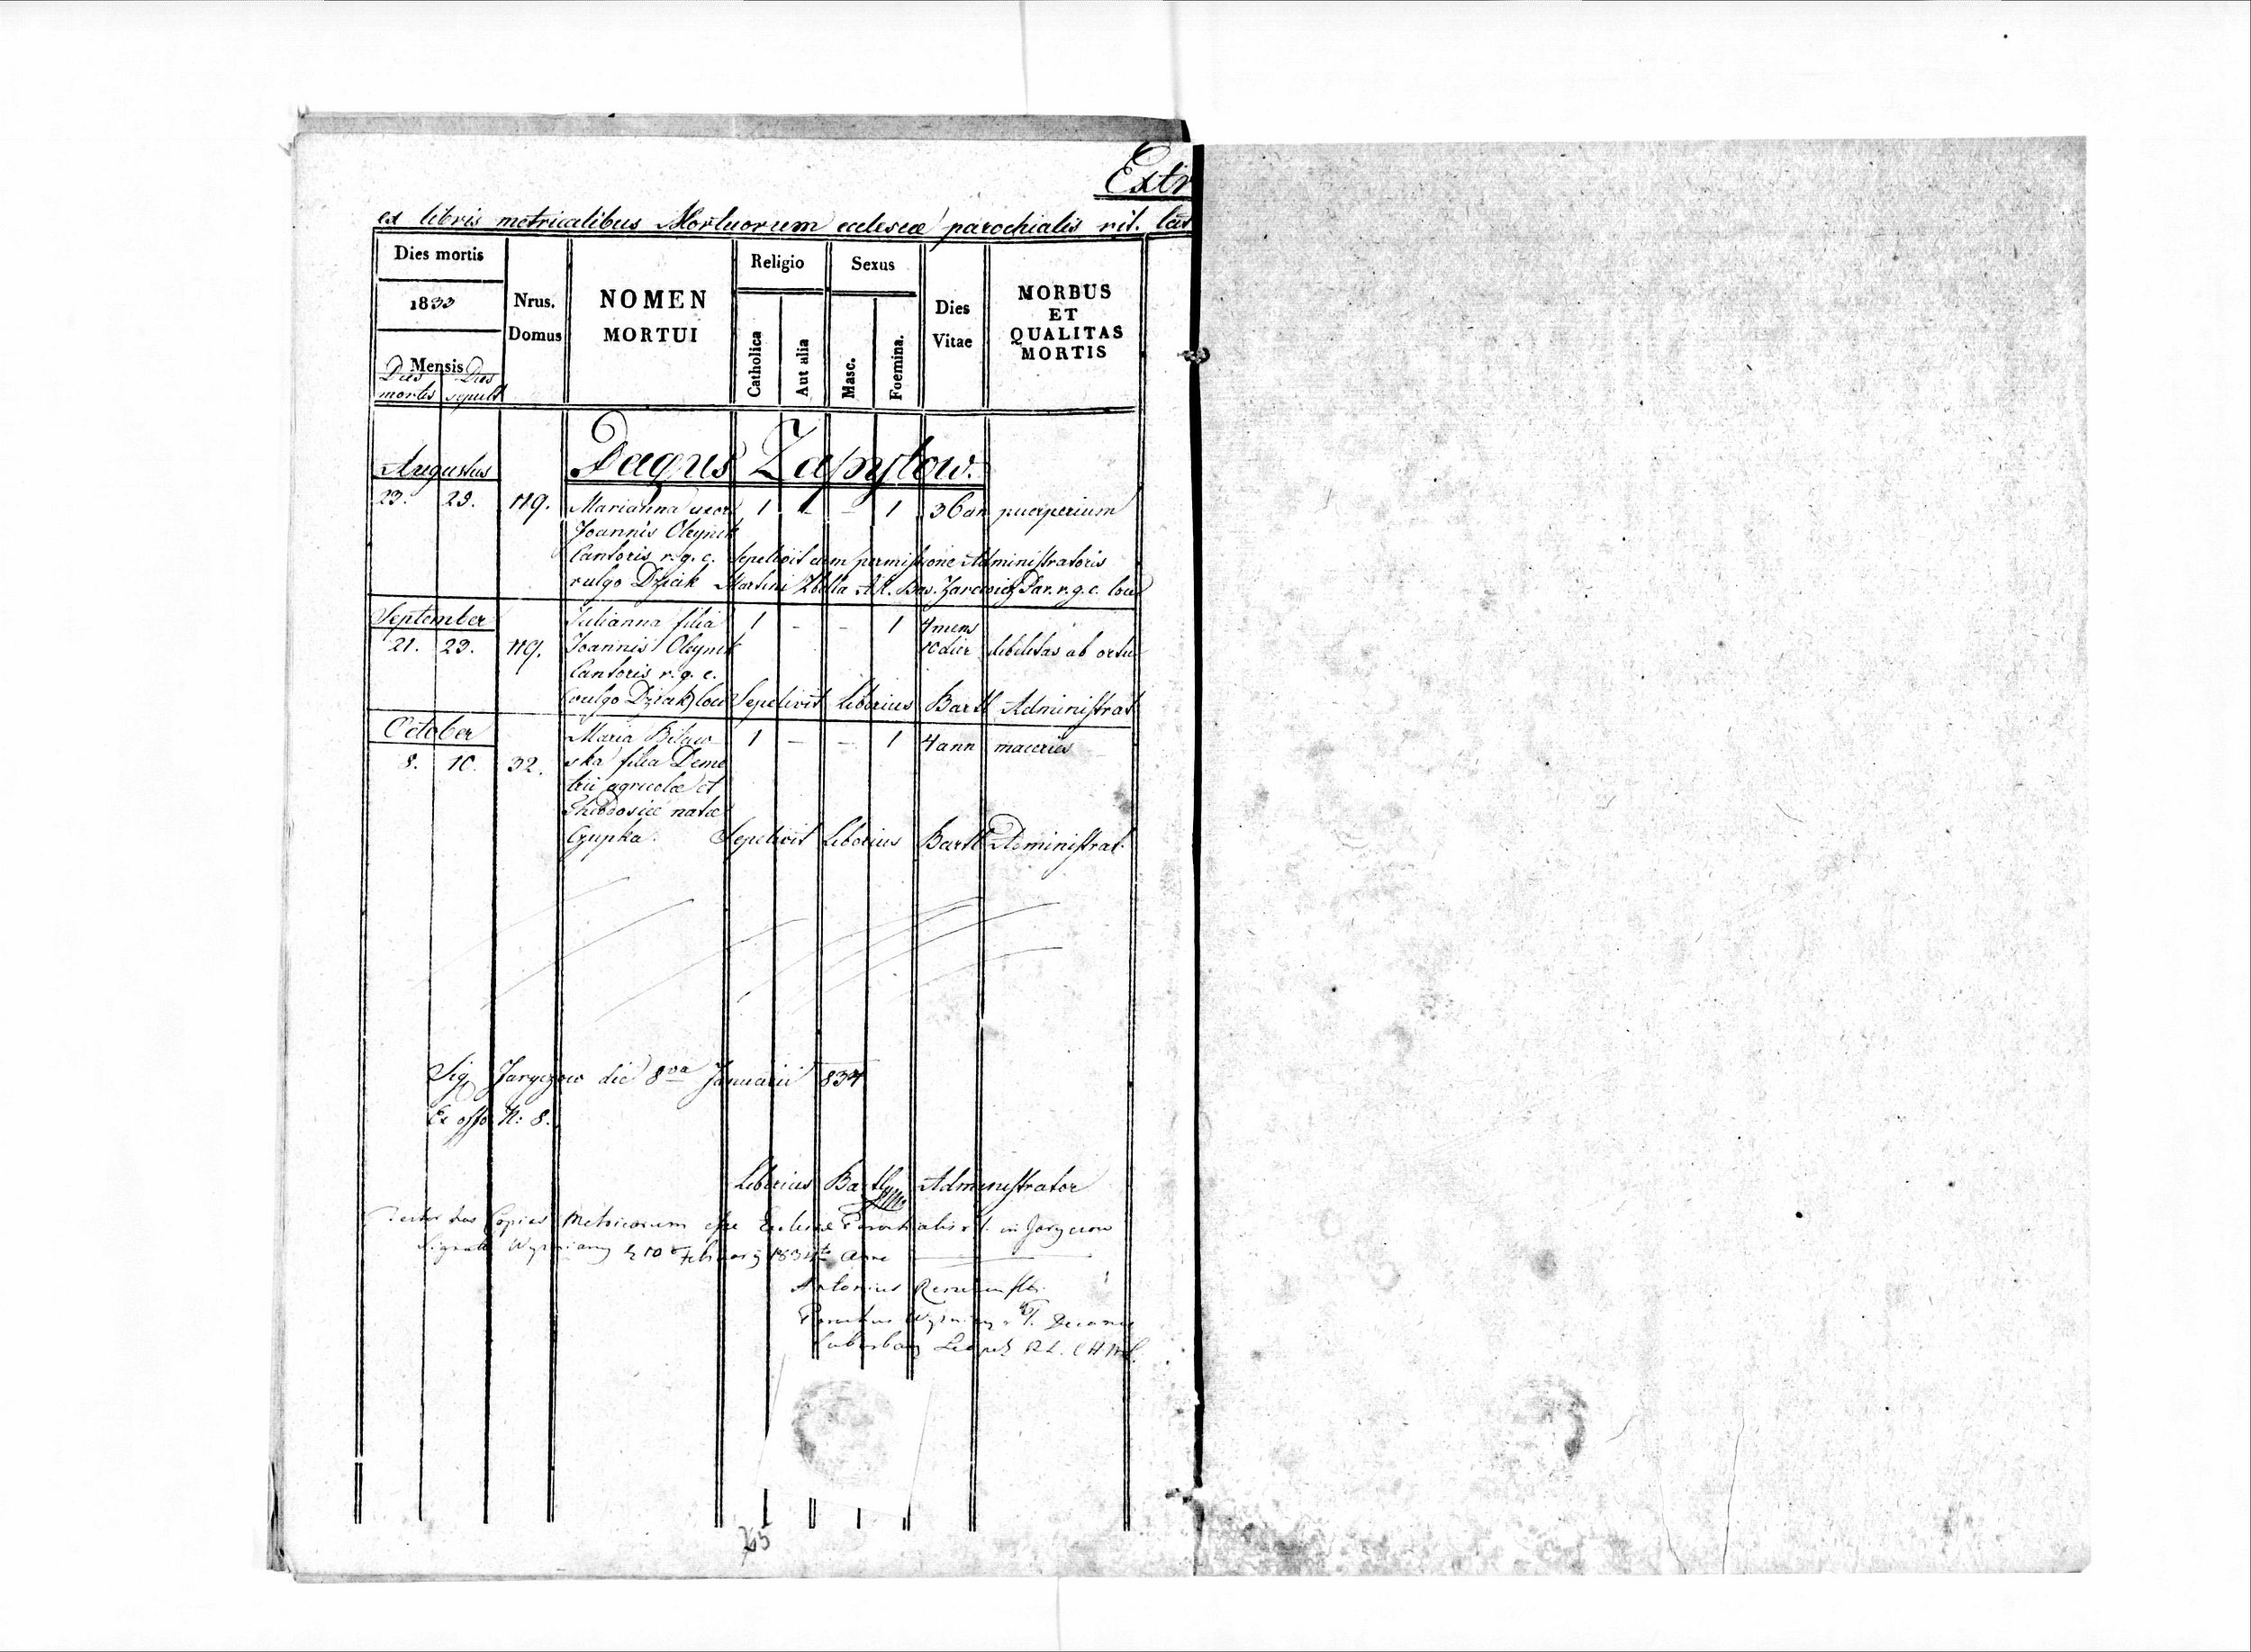 Extr
ex libris metricalibus Mortuorum ecclesiæ parochialis rit. lat
Dies mortis
1833
Mensis
Dies mortis
Dies sepult
Nrus. Domus
NOMEN MORTUI
Religio
Catholica
Aut alia
Sexus
Masc.
Foemina.
Dies Vitae
MORBUS ET QUALITAS MORTIS
Pagus Zapytow.
Augustus
23. 25. 119. Marianna uxor 1 - - 1 36 an puerperium
Joannis Oleynik
Cantoris r. g. c. Sepelivit cum permissione Administratoris
vulgo Dzicik Martini Zbella AR. Bas. Zarewicz Par. r. g. c. loci
September
Julianna filia 1 - - 1 4 mens
21. 23. 119. Joannis Oleynik 10 dier debilitas ab ortu
Cantoris r. g. c.
(vulgo Dzicik) loci Sepelivit Liborius Bartl Administrat
October
Maria Bilaw 1 - - 1 4 ann macries
8. 10. 32. ska filia Deme
trii agricolæ et
Theodosiæ natæ
Czupka. Sepelivit Liborius Bartl Administrat.
Sig Jaryczow die 8va Januarii 834
Ex offo N: 8.
Liborius Bartl Administrator
Copias Metricarum esse Ecclesiæ Parochialis r. l. in Jaryczow
10 Februarij 1834to Anni
Antonius
Parochus
65